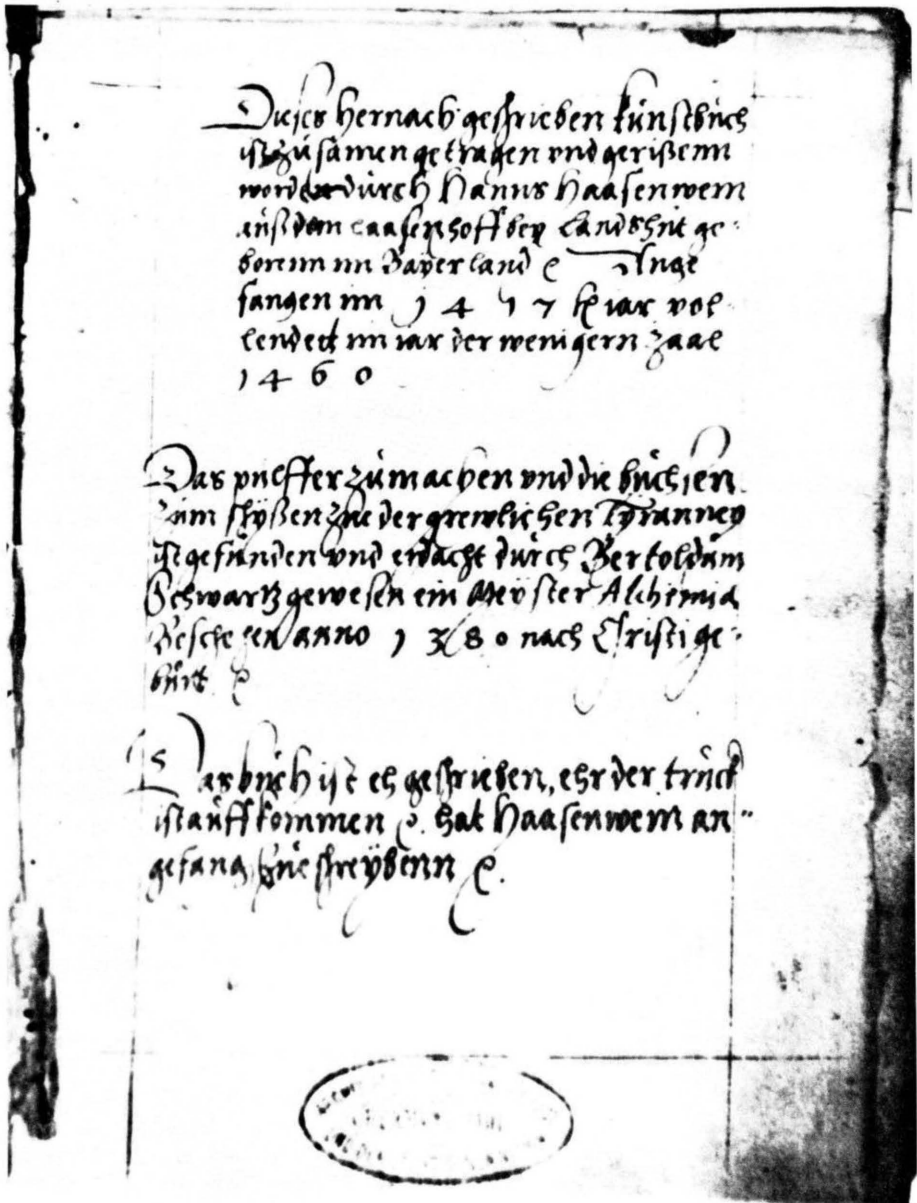 Dieses hernach geschrieben kunstbuch
ist zu samen getragen und gerissenn
worden durch Hanns Haasenwein
auß dem Haasenhoff bey Landshut ge-
borenn inn Bayerland Ange
fangen im 1417 iar vol
lendett inn iar der wenigern zaal
1460
Das pulffer zu machen und die buchsen
zum schyßen zue der grewlichen Tyranney
ist gefunden und erdacht durch Bertoldum
Schwartz gewesen ein Meyster Alchimia
Beschehen anno 1380 nach Christi ge-
burt
Das buch ist eh geschrieben, ehr der truck
ist auff kommen hat Haasenwein an-
gefang zue schreybenn